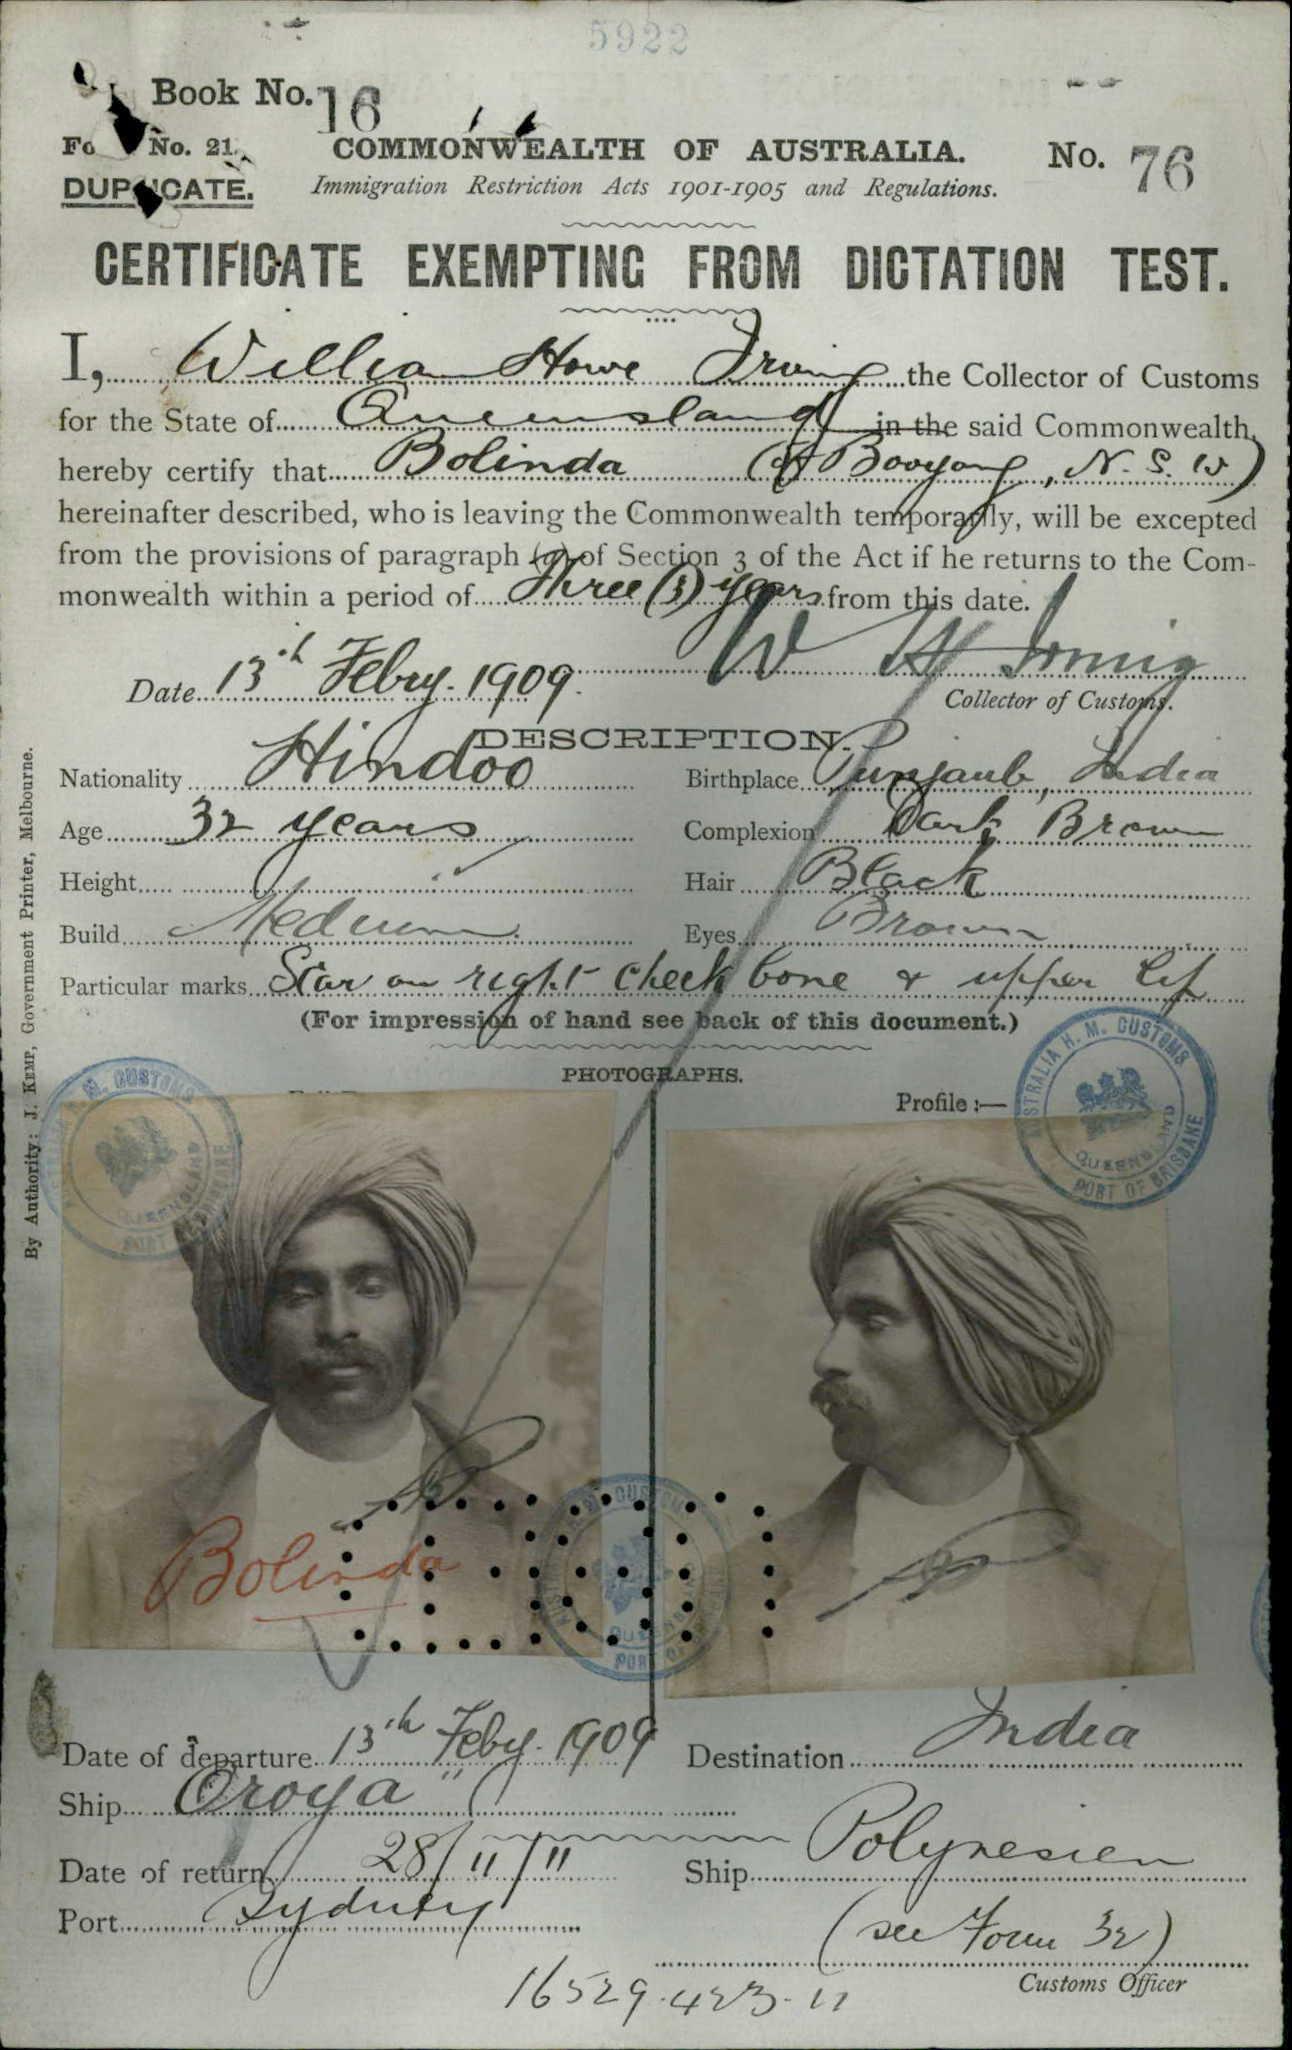 5922
Book No. 16
No. 21.
COMMONWEALTH OF AUSTRALIA.
No. 76
DUPLICATE.
Immigration Restriction Acts 1901-1905 and Regulations.
CERTIFICATE EXEMPTING FROM DICTATION TEST.
I, William Howe Irving the Collector of Customs
for the State of Queensland in the said Commonwealth,
hereby certify that Bolinda (of Booyong, N.S.W)
hereinafter described, who is leaving the Commonwealth temporarily, will be excepted
from the provisions of paragraph (a) of Section 3 of the Act if he returns to the Com-
monwealth within a period of Three (3) years from this date.
W H Irving
Date 13th Febry. 1909.
Collector of Customs.
DESCRIPTION.
Nationality Hindoo
Birthplace Punjaub, India
Age 32 years
Complexion Dark Brown
Height
Hair Black
Build Medium
Eyes Brown
Particular marks Star on right cheek bone & upper lip
(For impression of hand see back of this document.)
PHOTOGRAPHS.
Profile :—
AUSTRALIA H. M. CUSTOMS
QUEENSLAND
PORT OF BRISBANE
H. M. CUSTOMS
QUEENSLAND
PORT OF BRISBANE
Bolinda
QUEENSLAND
By Authority: J. KEMP, Government Printer, Melbourne.
Date of departure 13th Feby. 1909
Destination India
Ship Oroya "
Date of return 28/11/11
Ship Polynesien
Port Sydney
(see Form 32)
Customs Officer
16529.423.11